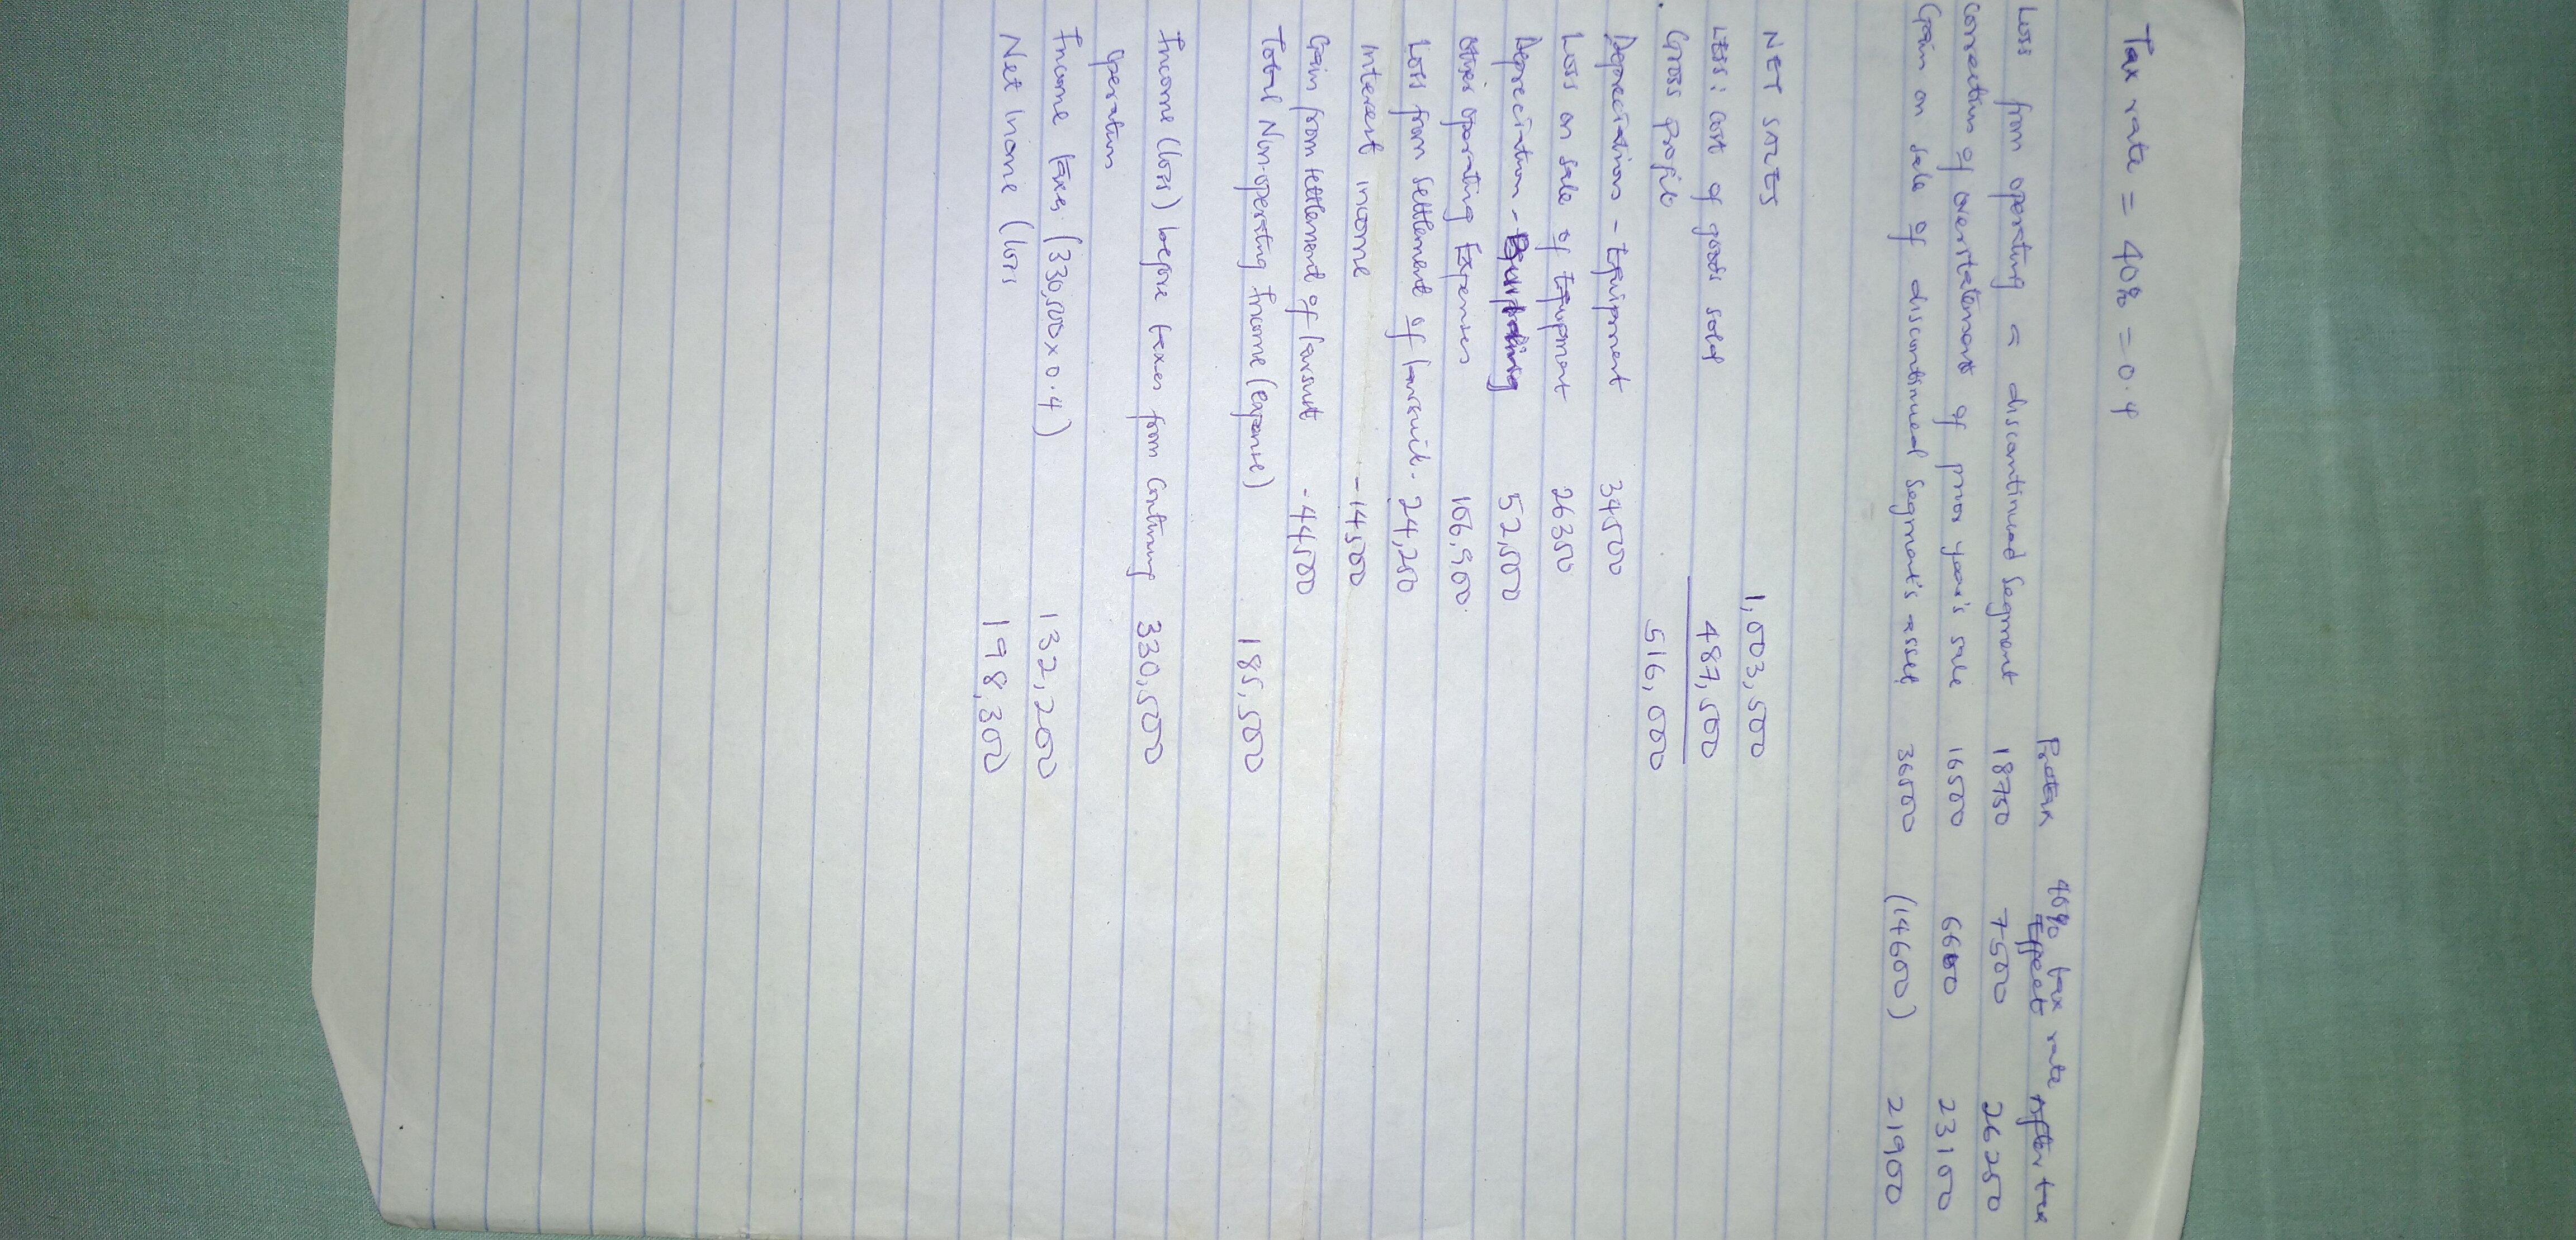 Tax rate = 40% = 0.4
Pretax 40% tax rate Effect After tax
Loss from operating a discontinued segment 18750 7500 26250
Correction of overstatement of prior year's sale 16500 6600 23100
Gain on sale of discontinued segment's asset 36500 (14600) 21900
NET SALES 1,003,500
LESS: Cost of goods sold 487,500
Gross profit 516,000
Depreciation - Equipment 34500
Loss on sale of Equipment 26350
Depreciation - Building 52,500
Other operating Expenses 106,900
Loss from settlement of lawsuit - 24,250
Interest income -14500
Gain from settlement of lawsuit -44500
Total Non-operating Income (Expense) 185,500
Income (loss) before taxes from Continuing 330,500
Operation
Income taxes (330,500 x 0.4) 132,200
Net Income (loss 198,300